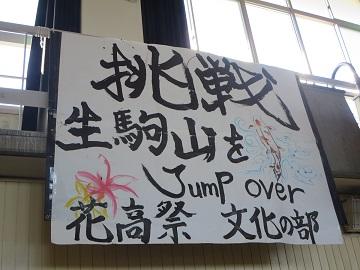 挑戦
生駒山を
Jump over
花高祭 文化の部